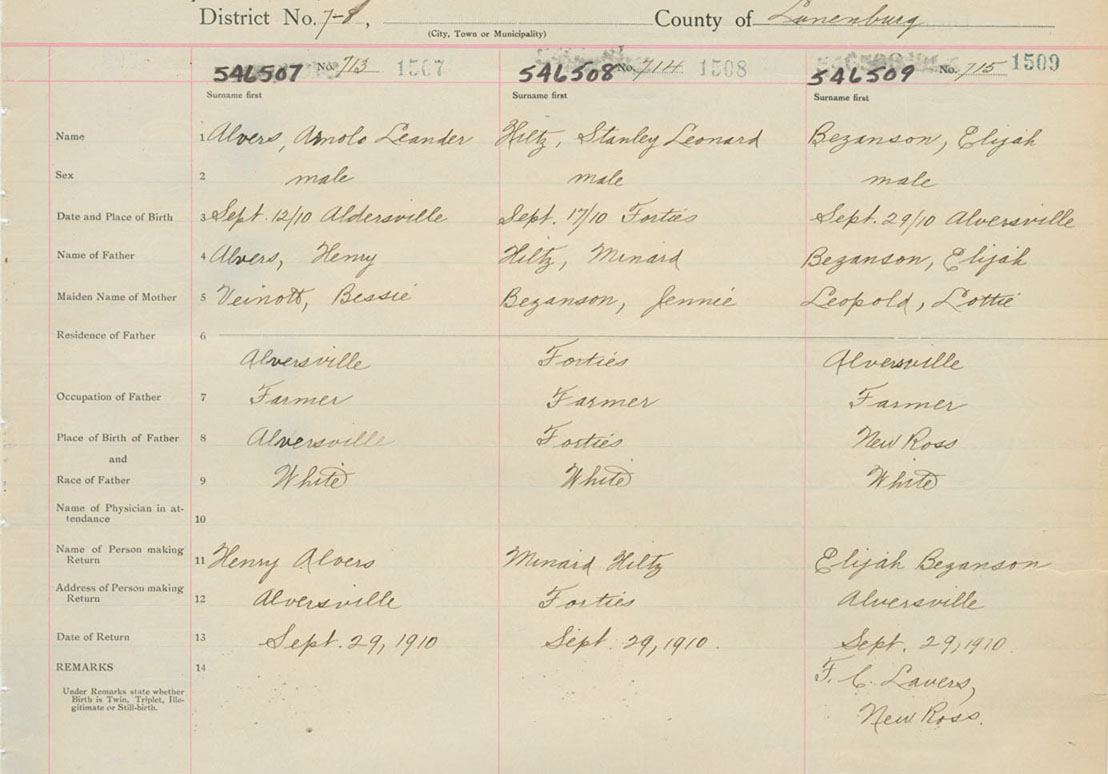 District No. 7-8, County of Lunenburg
(City, Town or Municipality)
546507 No. 713 1507 546508 No. 714 1508 546509 No. 715 1509
Surname first Surname first Surname first
Name 1 Alvers, Arnold Leander Hiltz, Stanley Leonard Bezanson, Elijah
Sex 2 male male male
Date and Place of Birth 3 Sept. 12/10 Aldersville Sept. 17/10 Forties Sept. 29/10 Alversville
Name of Father 4 Alvers, Henry Hiltz, Minard Bezanson, Elijah
Maiden Name of Mother 5 Veinott, Bessie Bezanson, Jennie Leopold, Lottie
Residence of Father 6
Alversville Forties Alversville
Occupation of Father 7 Farmer Farmer Farmer
Place of Birth of Father 8 Alversville Forties New Ross
and
Race of Father 9 White White White
Name of Physician in at-
tendance 10
Name of Person making
Return 11 Henry Alvers Minard Hiltz Elijah Bezanson
Address of Person making
Return 12 Alversville Forties Alversville
Date of Return 13 Sept. 29, 1910 Sept. 29, 1910. Sept. 29, 1910.
REMARKS 14 F. C. Lavers,
Under Remarks state whether
Birth is Twin, Triplet, Ille-
gitimate or Still-birth.
New Ross.